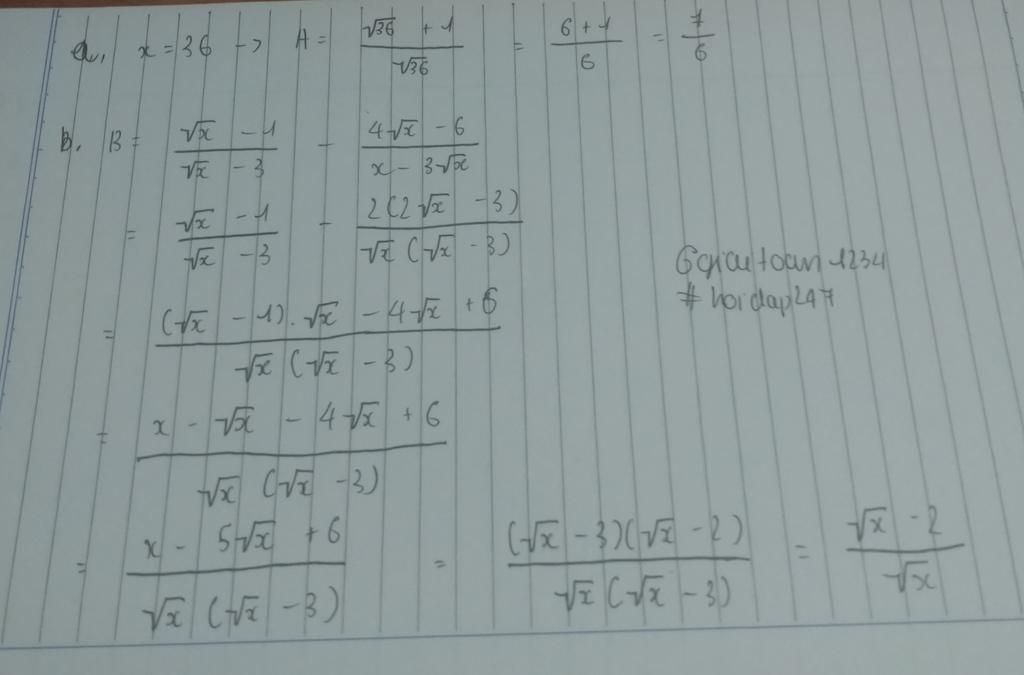 a, x = 36 -> A = (√36 + 1)/√36 = (6 + 1)/6 = 7/6
B. B = (√x - 1)/(√x - 3) - (4√x - 6)/(x - 3√x)
= (√x - 1)/(√x - 3) - 2(2√x - 3)/(√x (√x - 3))
= ((√x - 1).√x - 4√x + 6)/(√x (√x - 3))
= (x - √x - 4√x + 6)/(√x (√x - 3))
= (x - 5√x + 6)/(√x (√x - 3)) = ((√x - 3)(√x - 2))/(√x (√x - 3)) = (√x - 2)/√x
# hoidap247